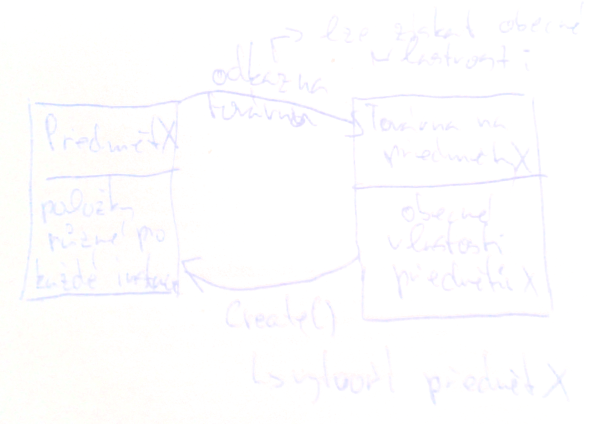 ↳ lze získat obecné
vlastnosti
odkaz na
továrnu
PředmětX
položky
různé pro
každé instance
Továrna na
předmětX
obecné
vlastnosti
předmětu X
Create()
↳ vytvoří předmět X